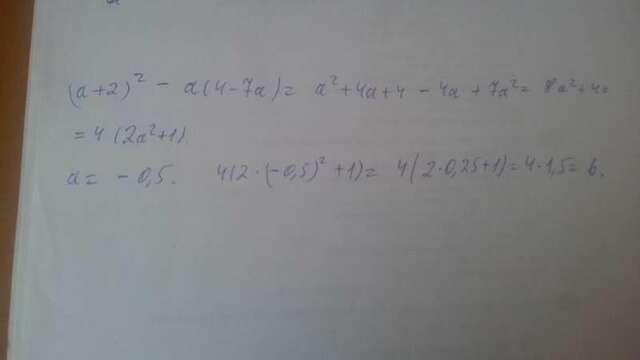 (a+2)² - a(4-7a) = a²+4a+4 - 4a + 7a² = 8a²+4=
= 4(2a²+1)
a = - 0,5. 4(2·(-0,5)² +1) = 4(2·0,25+1) = 4·1,5 = 6.